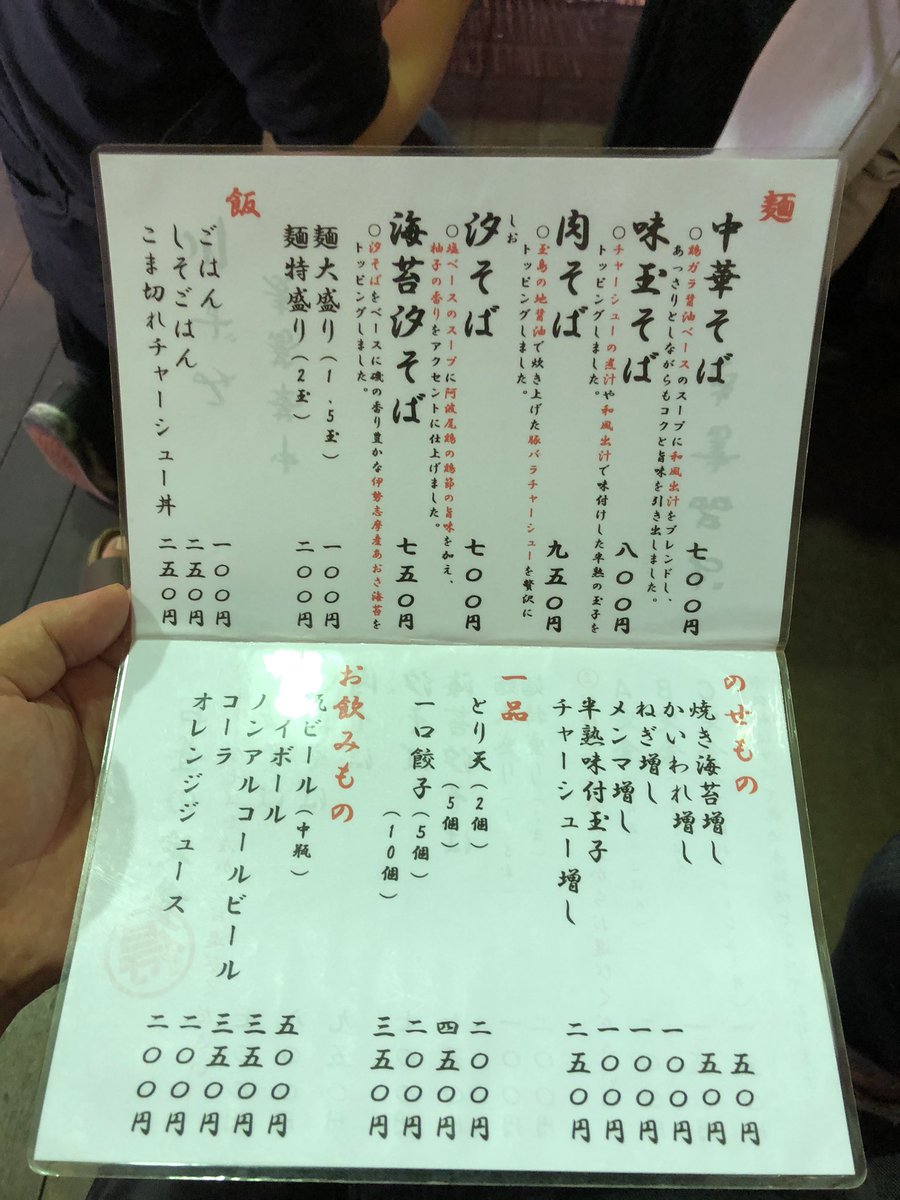 麺
中華そば 七〇〇円
〇鶏ガラ醤油ベースのスープに和風出汁をブレンドし、
あっさりとしながらもコクと旨味を引き出しました。
味玉そば 八〇〇円
〇チャーシューの煮汁や和風出汁で味付けした半熟の玉子を
トッピングしました。
肉そば 九五〇円
〇玉島の地醤油で炊き上げた豚バラチャーシューを贅沢に
トッピングしました。
しお
汐そば 七〇〇円
〇塩ベースのスープに阿波尾鶏の鶏節の旨味を加え、
柚子の香りをアクセントに仕上げました。
海苔汐そば 七五〇円
〇汐そばをベースに磯の香り豊かな伊勢志摩産あおさ海苔を
トッピングしました。
麺大盛り(1.5玉) 一〇〇円
麺特盛り(2玉) 二〇〇円
飯
ごはん 一〇〇円
しそごはん 二五〇円
こま切れチャーシュー丼 二五〇円
のせもの
焼き海苔増し 一五〇円
かいわれ増し 五〇円
ねぎ増し 一〇〇円
メンマ増し 一〇〇円
半熟味付玉子 一〇〇円
チャーシュー増し 二五〇円
一品
とり天(2個) 二〇〇円
(5個) 四五〇円
一口餃子(5個) 二〇〇円
(10個) 三五〇円
お飲みもの
ビール(中瓶) 五〇〇円
イボール 三五〇円
ノンアルコールビール 三五〇円
コーラ 二〇〇円
オレンジジュース 二〇〇円